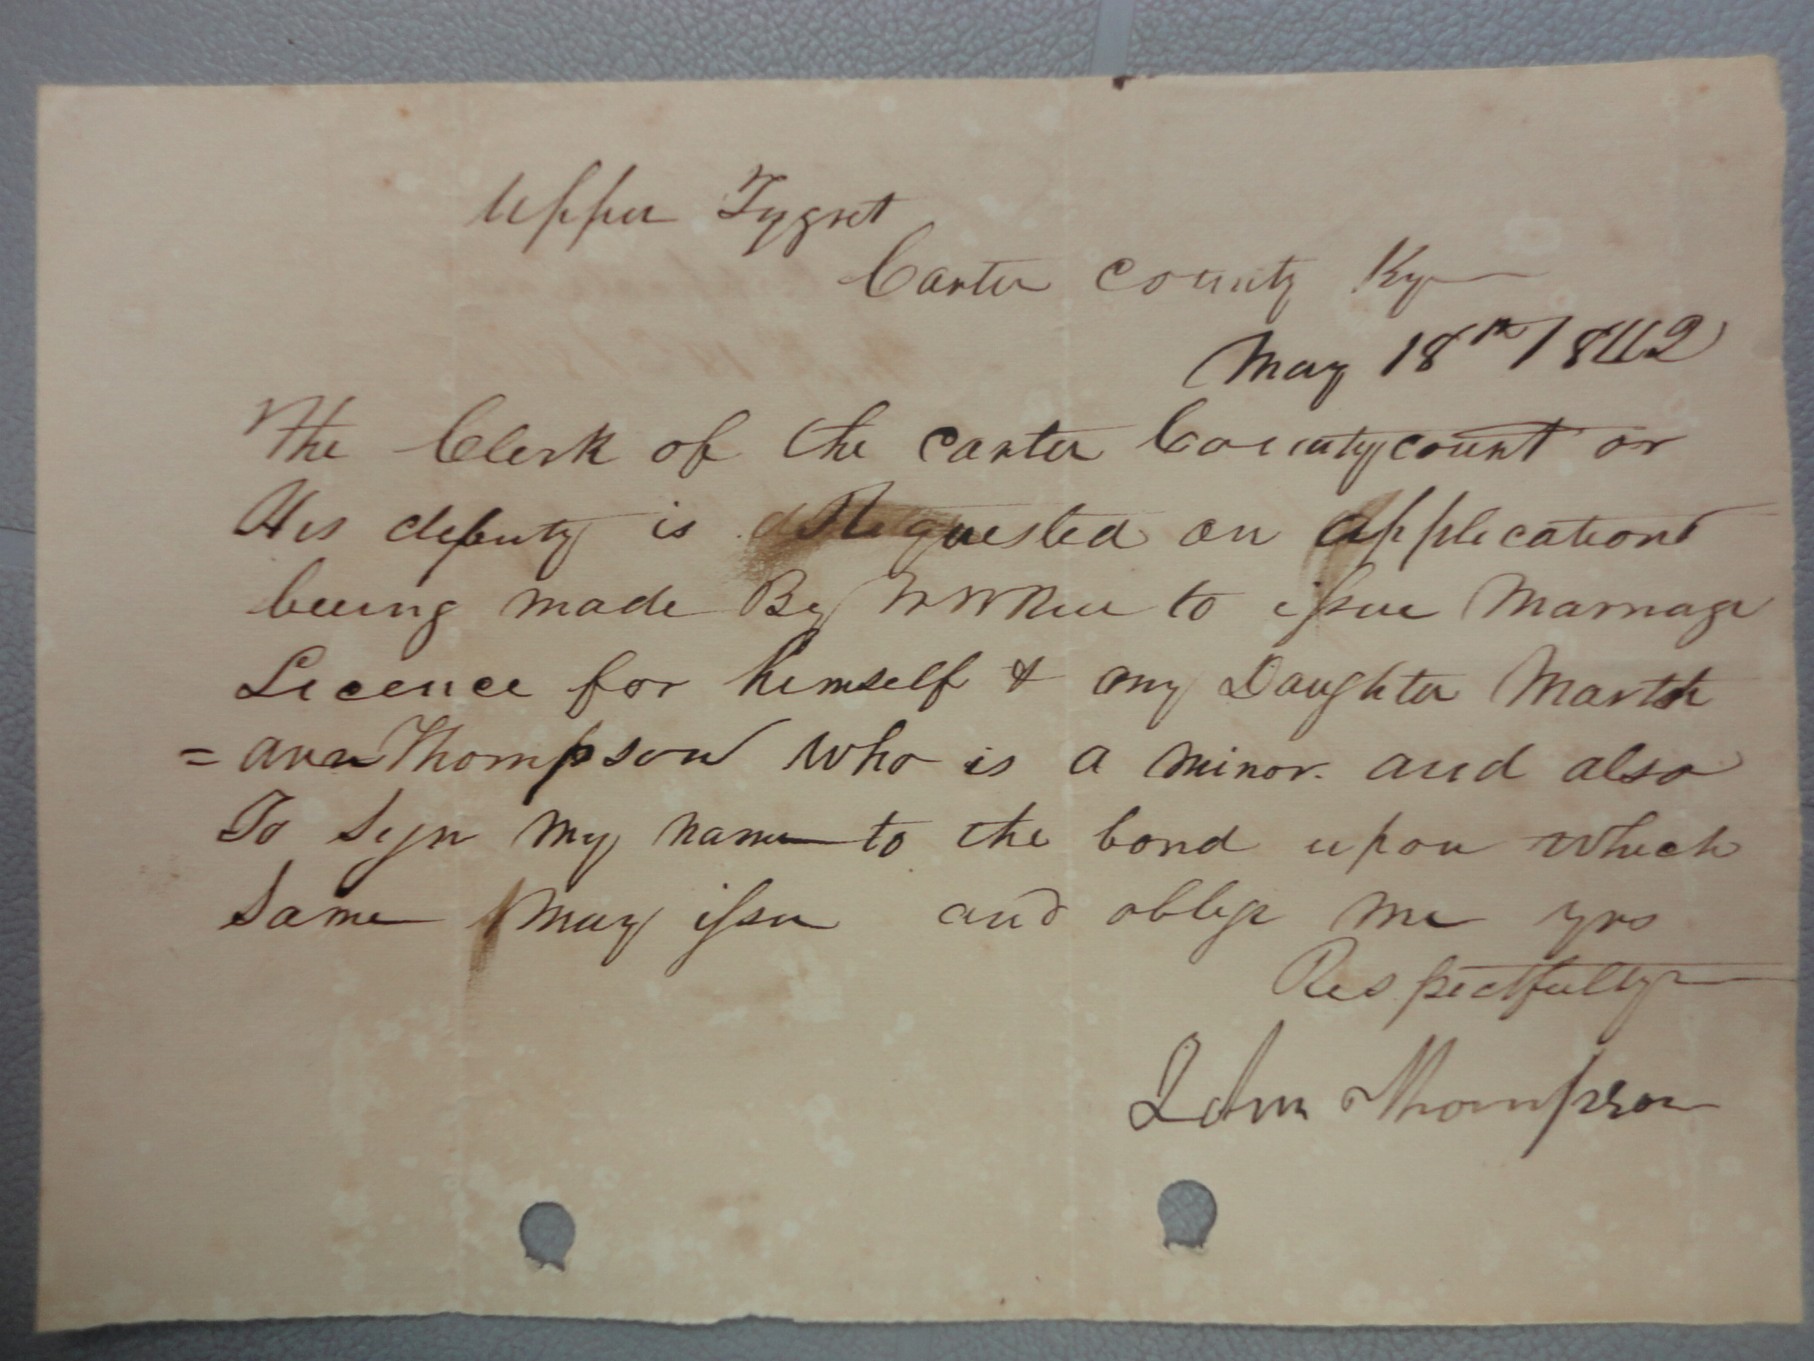 Upper Tygret
Carter County Ky
May 18th 1842
The Clerk of the Carter County court or
His deputy is Requested on application
being made By to issue Marriage
Licence for himself & my Daughter Marth
= ann Thompson who is a minor. and also
To Sign my name to the bond upon which
Same May issue and oblige me yrs
Respectfully
John Thompson